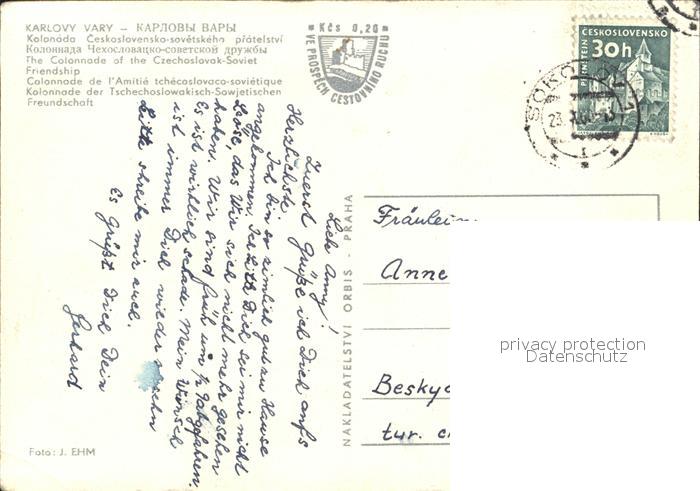 KARLOVY VARY – КАРЛОВЫ ВАРЫ
Kolonáda Československo-sovětského přátelství
Колоннада Чехословацко-советской дружбы
The Colonnade of the Czechoslovak-Soviet
Friendship
Colonnade de l'Amitié tchécoslovaco-soviétique
Kolonnade der Tschechoslowakisch-Sowjetischen
Freundschaft
Kčs 0,20
VE PROSPĚCH CESTOVNÍHO RUCHU
ČESKOSLOVENSKO
30h
PERNŠTEJN
SOKOLOV
23.
Liebe Anny!
Zuerst Grüße ich Dich aufs
Herzlichste.
Ich bin so zimlich gut zu Hause
angekommen. Ich bitte Dich sei mir nicht
böse, das Wir sich nicht mehr gesehen
haben. Wir sind früh um abgefahren.
Es ist wirklich schade. Mein Wunsch
ist immer Dich wieder sehn
Bitte schreibe mir auch.
Es Grüßt Dich Dein
Gerhard
Foto: J. EHM
NAKLADATELSTVÍ ORBIS - PRAHA
Fräulein
Anne
Besky
tur. c
privacy protection
Datenschutz